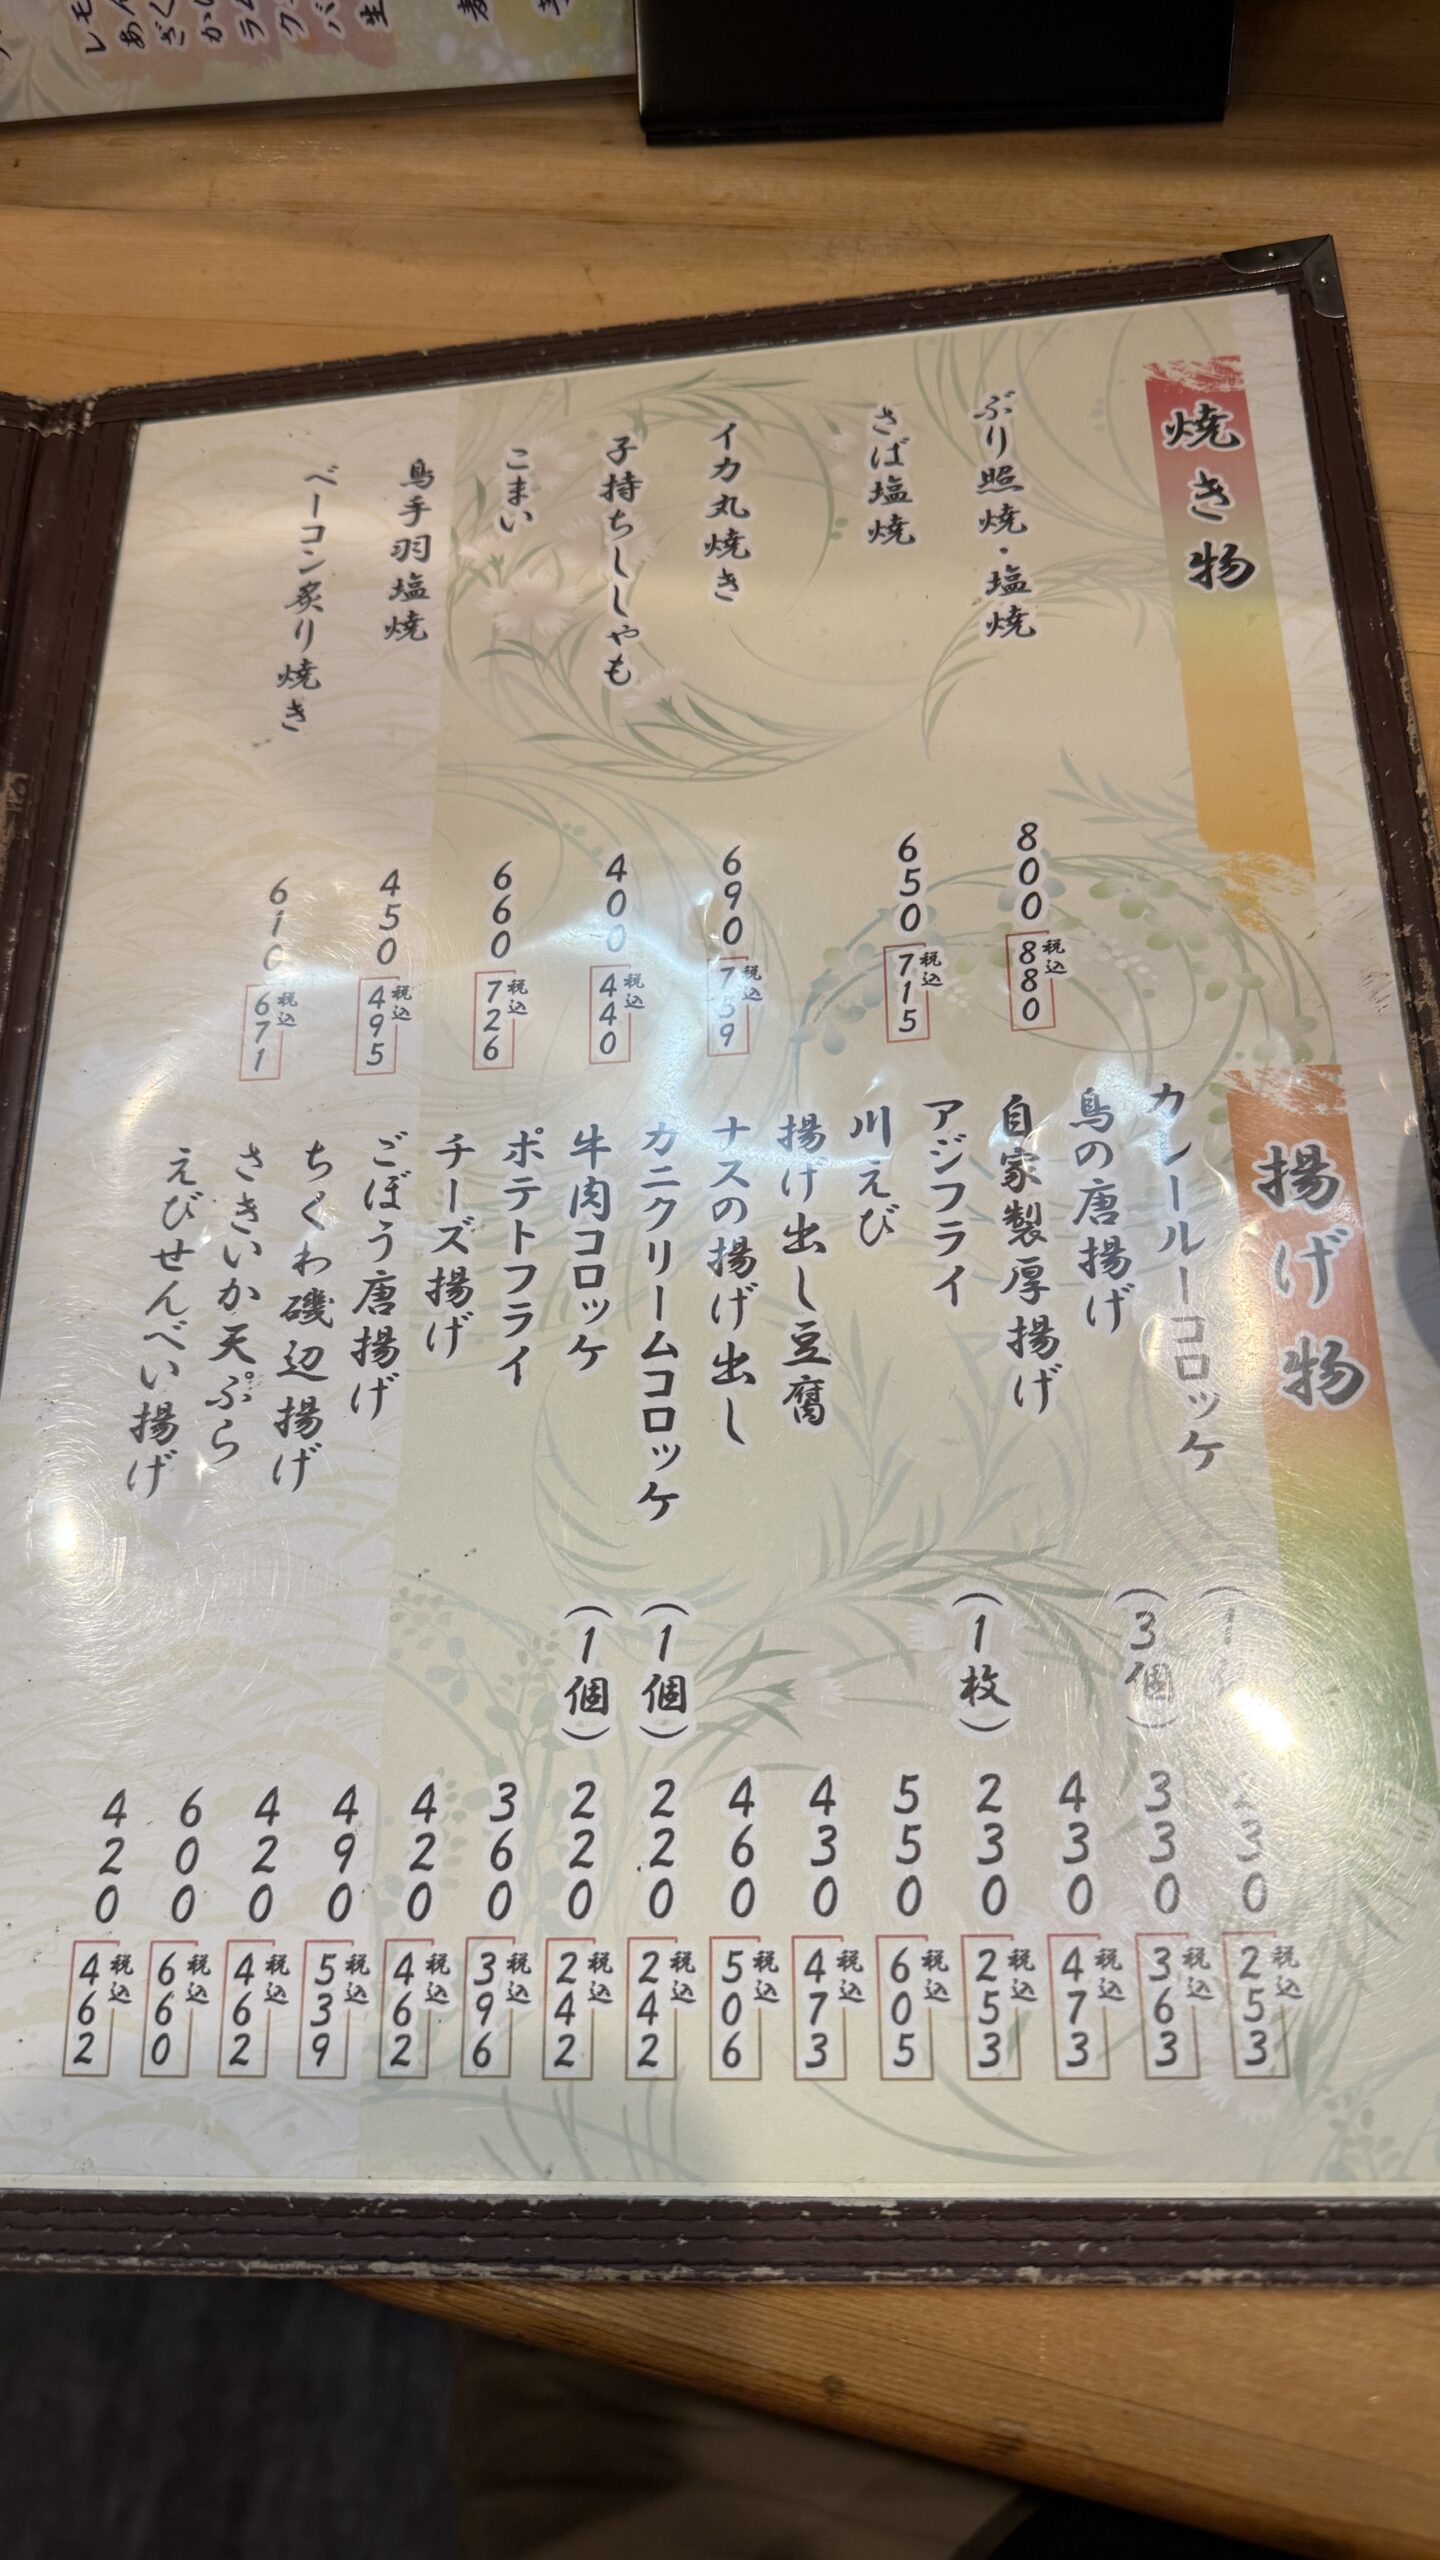 焼き物
ぶり照焼・塩焼 800 税込880
さば塩焼 650 税込715
イカ丸焼き 690 税込759
子持ちししゃも 400 税込440
こまい 660 税込726
鳥手羽塩焼 450 税込495
ベーコン炙り焼き 610 税込671
揚げ物
カレールーコロッケ 230 税込253
鳥の唐揚げ (3個) 330 税込363
自家製厚揚げ 430 税込473
アジフライ (1枚) 230 税込253
川えび 550 税込605
揚げ出し豆腐 430 税込473
ナスの揚げ出し 460 税込506
カニクリームコロッケ (1個) 220 税込242
牛肉コロッケ (1個) 220 税込242
ポテトフライ 360 税込396
チーズ揚げ 420 税込462
ごぼう唐揚げ 490 税込539
ちくわ磯辺揚げ 420 税込462
さきいか天ぷら 600 税込660
えびせんべい揚げ 420 税込462